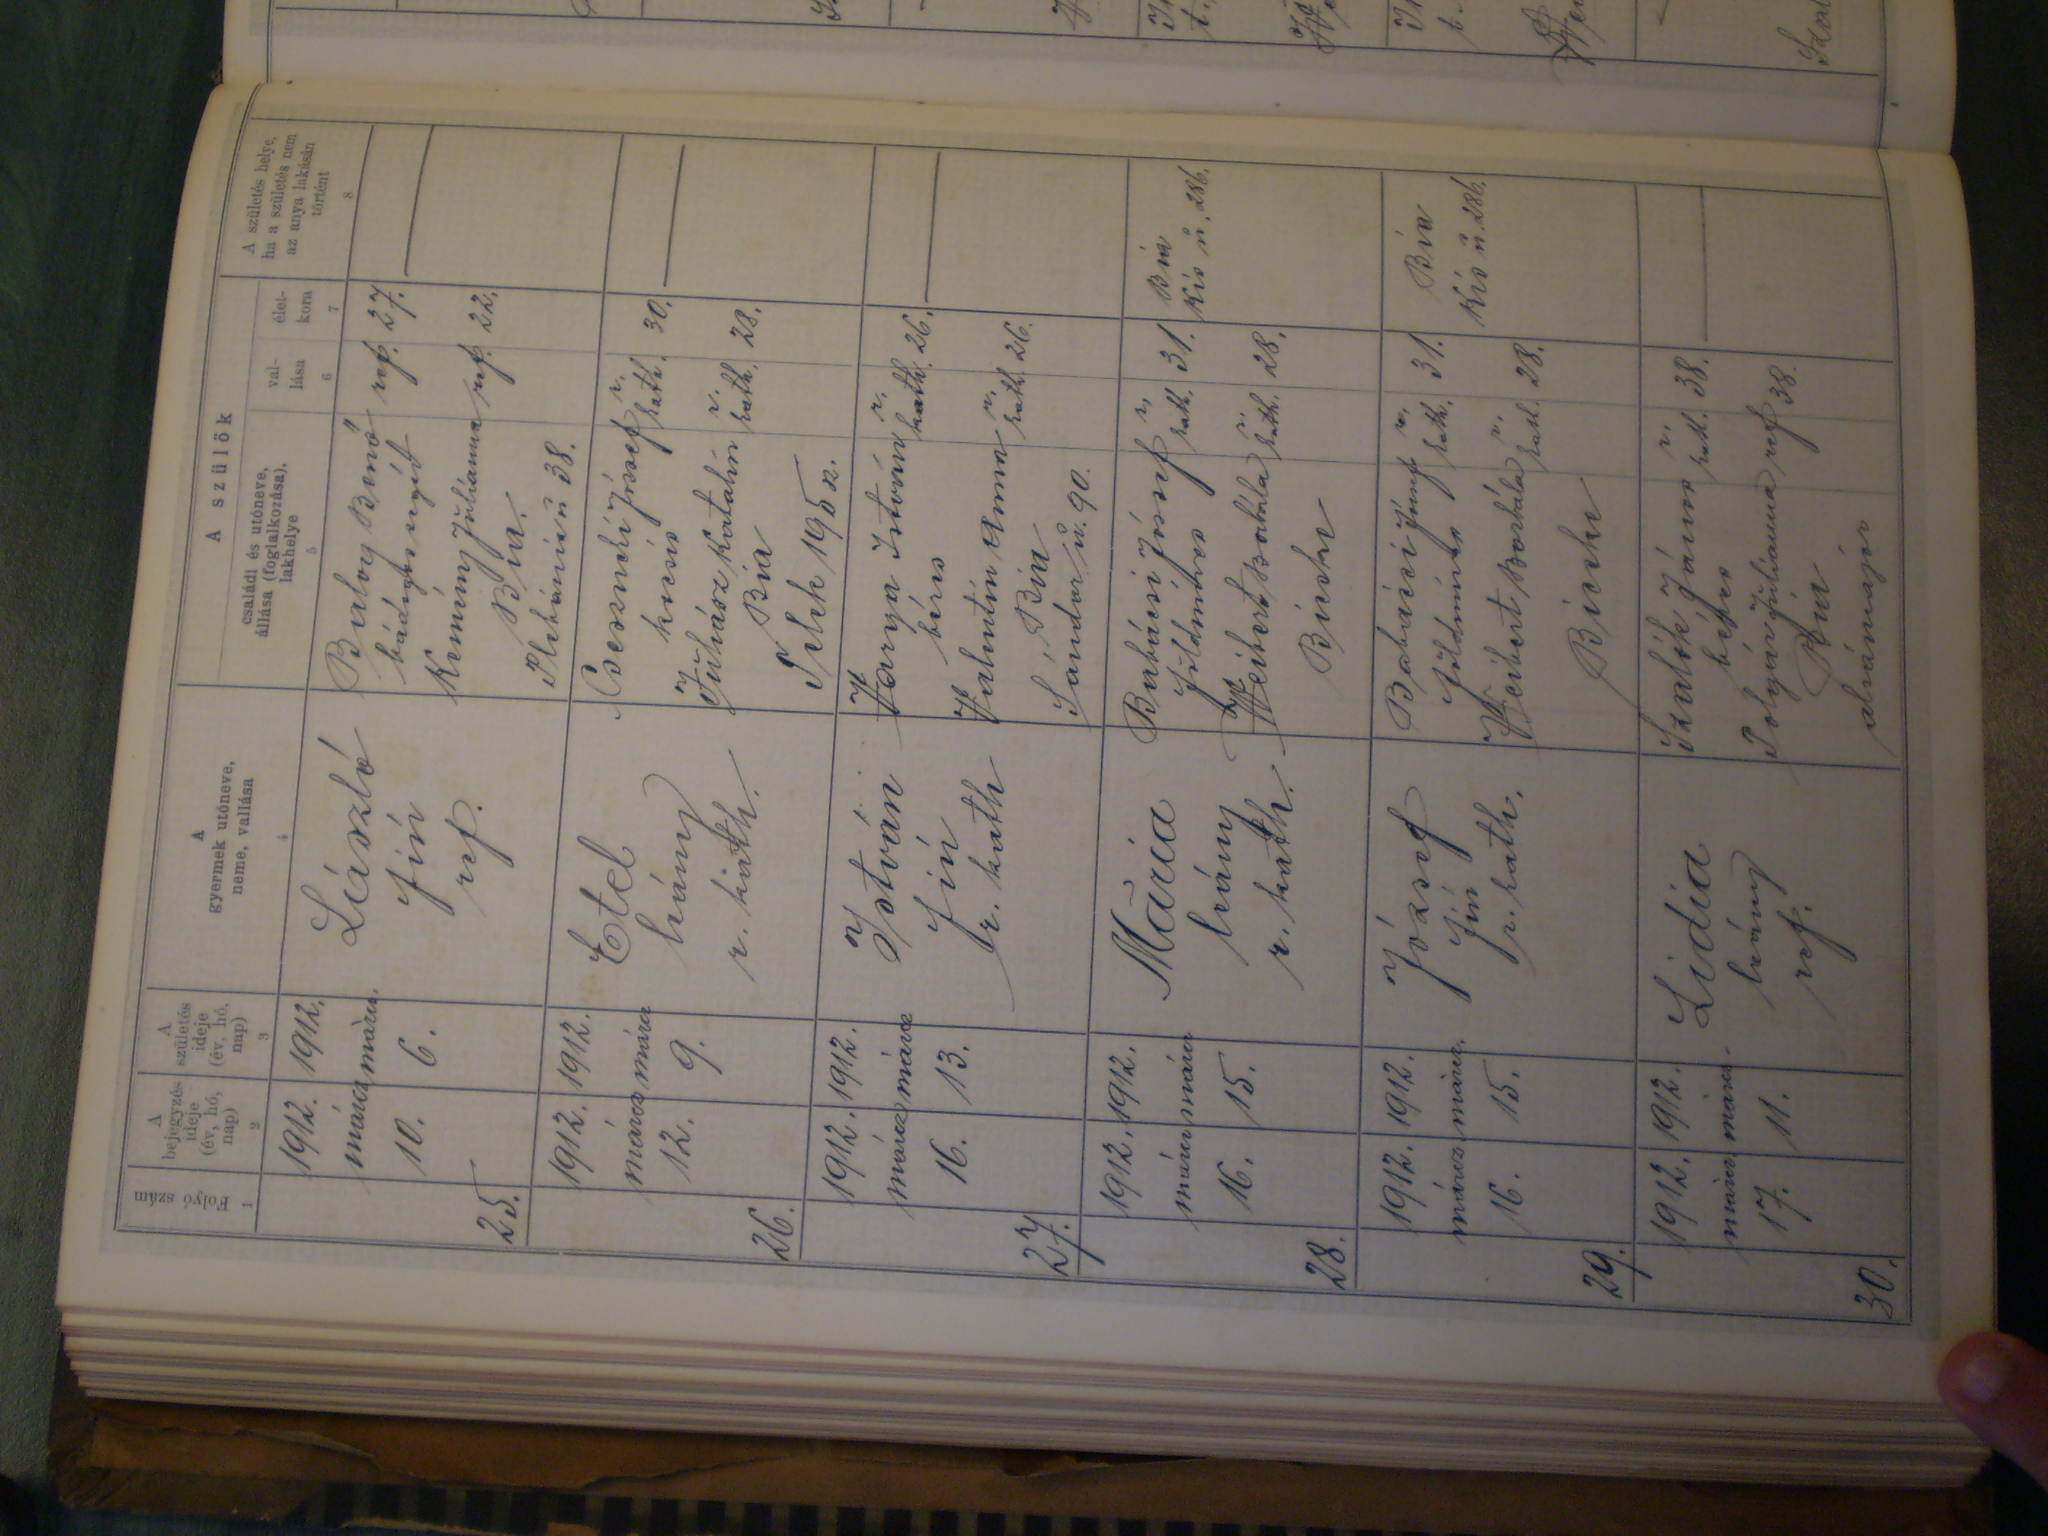 Folyó szám
1
A bejegyzés ideje (év, hó, nap)
2
A születés ideje (év, hó, nap)
3
A gyermek utóneve, neme, vallása
4
A szülők
családi és utóneve, állása (foglalkozása), lakhelye
5
val-lása
6
élet-kora
7
A születés helye, ha a születés nem az anya lakásán történt
8
25.
1912. 1912.
márcz márcz.
10. 6.
László
fiú
ref.
Balog Benő ref. 27.
Kemény Juliánna ref. 22.
Bia
38.
26.
1912. 1912.
márcz márcz
12. 9.
Etel
leány
r. kath.
Cseszneki József r. kath. 30.
kocsis
Juhász Katalin r. kath. 28.
Bia
Telek 195 sz.
27.
1912. 1912.
márcz márcz
16. 13.
István
fiú
r. kath
Varga István r. kath. 26.
béres
Valentin Anna r. kath. 26.
Bia
Sándor ú. 90.
28.
1912. 1912.
márcz márcz
16. 15.
Mária
leány
r. kath.
József r. kath. 31.
földmíves
Weibert Borbála r. kath. 28.
Bicske
Bia
Kis ú. 286.
29.
1912. 1912.
márcz márcz.
16. 15.
József
fiú
r. kath.
József r. kath. 31.
földmíves
Weibert Borbála r. kath. 28.
Bicske
Bia
Kis ú. 286.
30.
1912. 1912.
márcz. márcz.
17. 11.
Lidia
leány
ref.
János r. kath. 38.
béres
Juliánna ref 38.
Bia